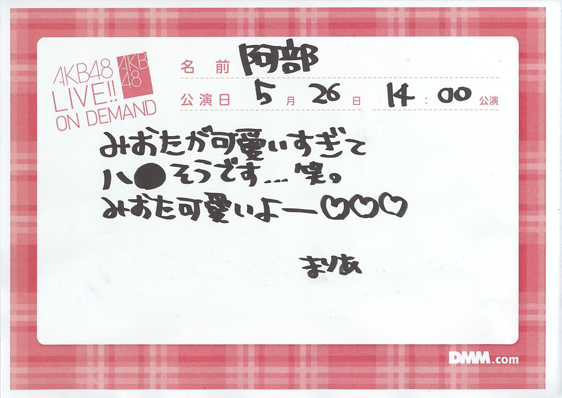 AKB48
LIVE!!
ON DEMAND
AKB
48
名前 阿部
公演日 5月 26日 14:00公演
みおたが可愛いすぎて
ハ●そうです...笑。
みおた可愛いよー♡♡♡
まりあ
DMM.com